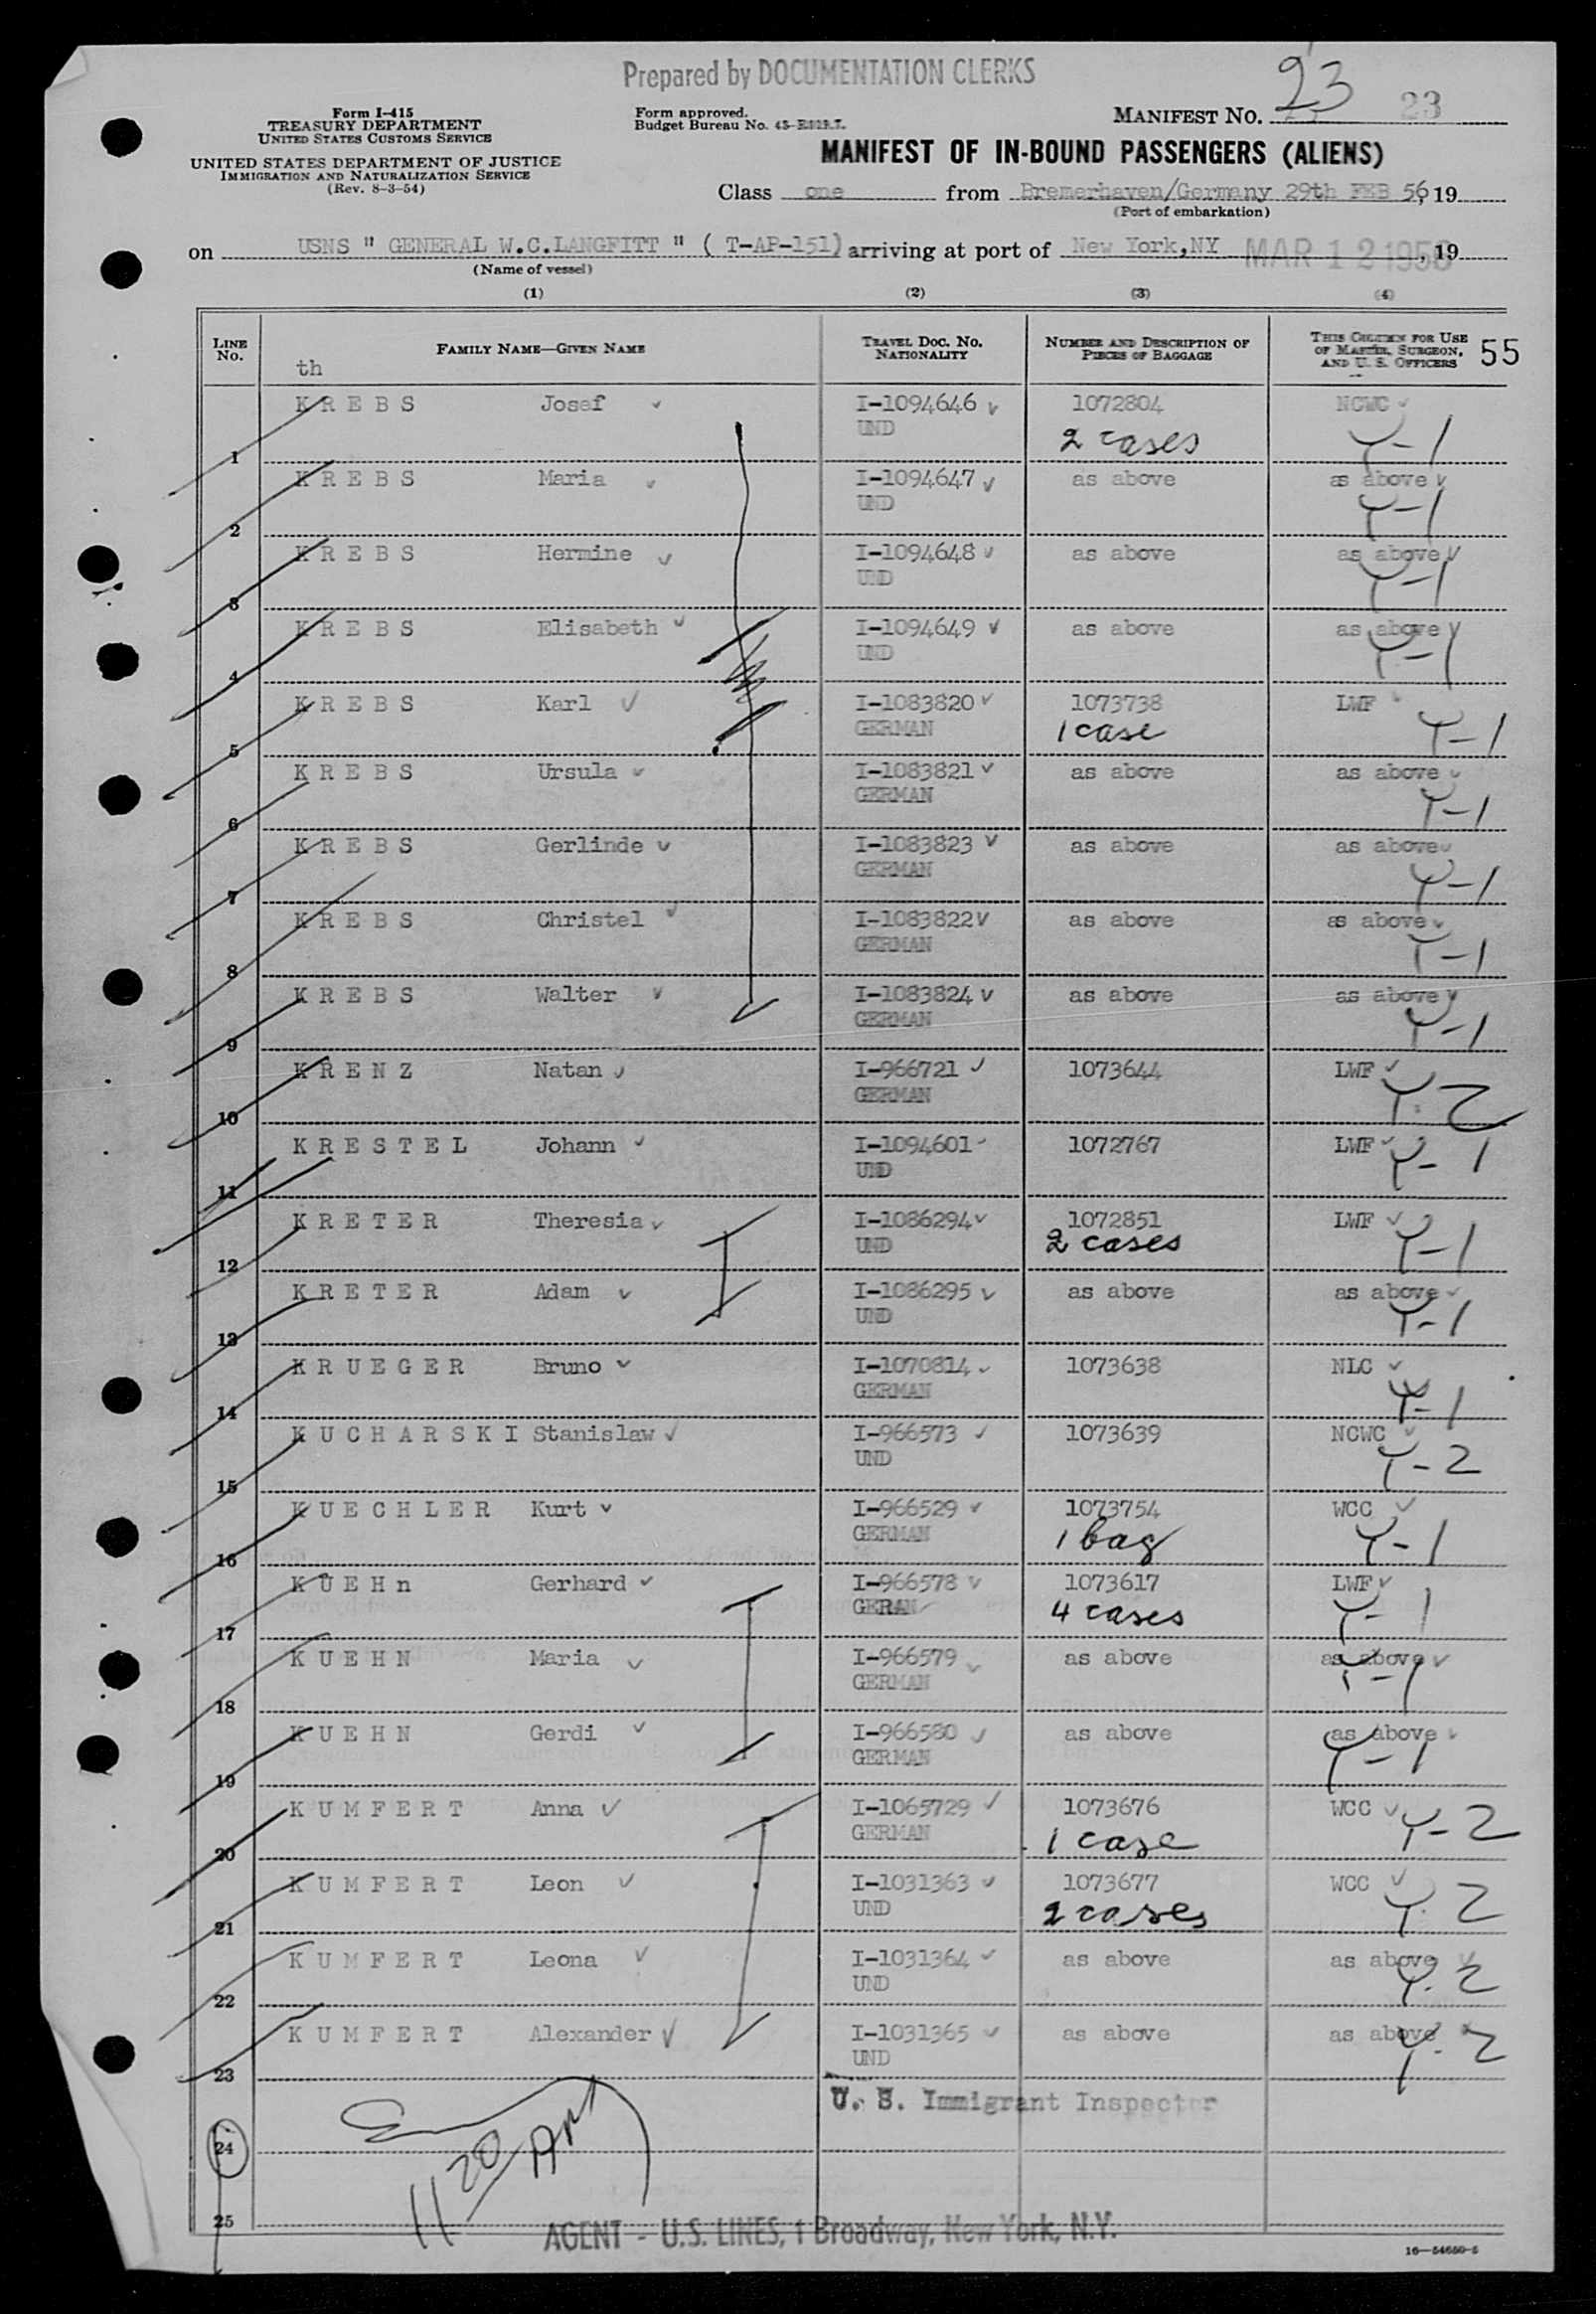 Prepared by DOCUMENTATION CLERKS
Form I-415
TREASURY DEPARTMENT
UNITED STATES CUSTOMS SERVICE
UNITED STATES DEPARTMENT OF JUSTICE
IMMIGRATION AND NATURALIZATION SERVICE
(Rev. 8-3-54)
Form approved.
Budget Bureau No.
MANIFEST NO. 23 23
MANIFEST OF IN-BOUND PASSENGERS (ALIENS)
Class one from Bremerhaven/Germany 29th FEB 56 19
(Port of embarkation)
on USNS " GENERAL W.C.LANGFITT " ( T-AP-151) arriving at port of New York,NY MAR 12 1956, 19
(Name of vessel)
(1) (2) (3) (4)
LINE NO. FAMILY NAME—GIVEN NAME TRAVEL DOC. NO. NATIONALITY NUMBER AND DESCRIPTION OF PIECES OF BAGGAGE THIS COLUMN FOR USE OF MASTER, SURGEON, AND U. S. OFFICERS 55
th
K R E B S Josef I-1094646 1072804 NCWC
1 UND 2 cases Y-1
K R E B S Maria I-1094647 as above as above
2 UND Y-1
K R E B S Hermine I-1094648 as above as above
3 UND Y-1
K R E B S Elisabeth I-1094649 as above as above
4 UND Y-1
K R E B S Karl I-1083820 1073738 LWF
5 GERMAN 1 case Y-1
K R E B S Ursula I-1083821 as above as above
6 GERMAN Y-1
K R E B S Gerlinde I-1083823 as above as above
7 GERMAN Y-1
K R E B S Christel I-1083822 as above as above
8 GERMAN Y-1
K R E B S Walter I-1083824 as above as above
9 GERMAN Y-1
K R E N Z Natan I-966721 1073644 LWF
10 GERMAN Y-2
K R E S T E L Johann I-1094601 1072767 LWF
11 UND Y-1
K R E T E R Theresia I-1086294 1072851 LWF
12 UND 2 cases Y-1
K R E T E R Adam I-1086295 as above as above
13 UND Y-1
K R U E G E R Bruno I-1070814 1073638 NLC
14 GERMAN Y-1
K U C H A R S K I Stanislaw I-966573 1073639 NCWC
15 UND Y-2
K U E C H L E R Kurt I-966529 1073754 WCC
16 GERMAN 1 bag Y-1
K U E H n Gerhard I-966578 1073617 LWF
17 GERAN 4 cases Y-1
K U E H N Maria I-966579 as above as above
18 GERMAN Y-1
K U E H N Gerdi I-966580 as above as above
19 GERMAN Y-1
K U M F E R T Anna I-1065729 1073676 WCC
20 GERMAN 1 case Y-2
K U M F E R T Leon I-1031363 1073677 WCC
21 UND 2 cases Y-2
K U M F E R T Leona I-1031364 as above as above
22 UND Y-2
K U M F E R T Alexander I-1031365 as above as above
23 UND Y-2
U. S. Immigrant Inspector
24
11 20 AM
25
AGENT - U.S. LINES, 1 Broadway, New York, N.Y.
16—54650-5